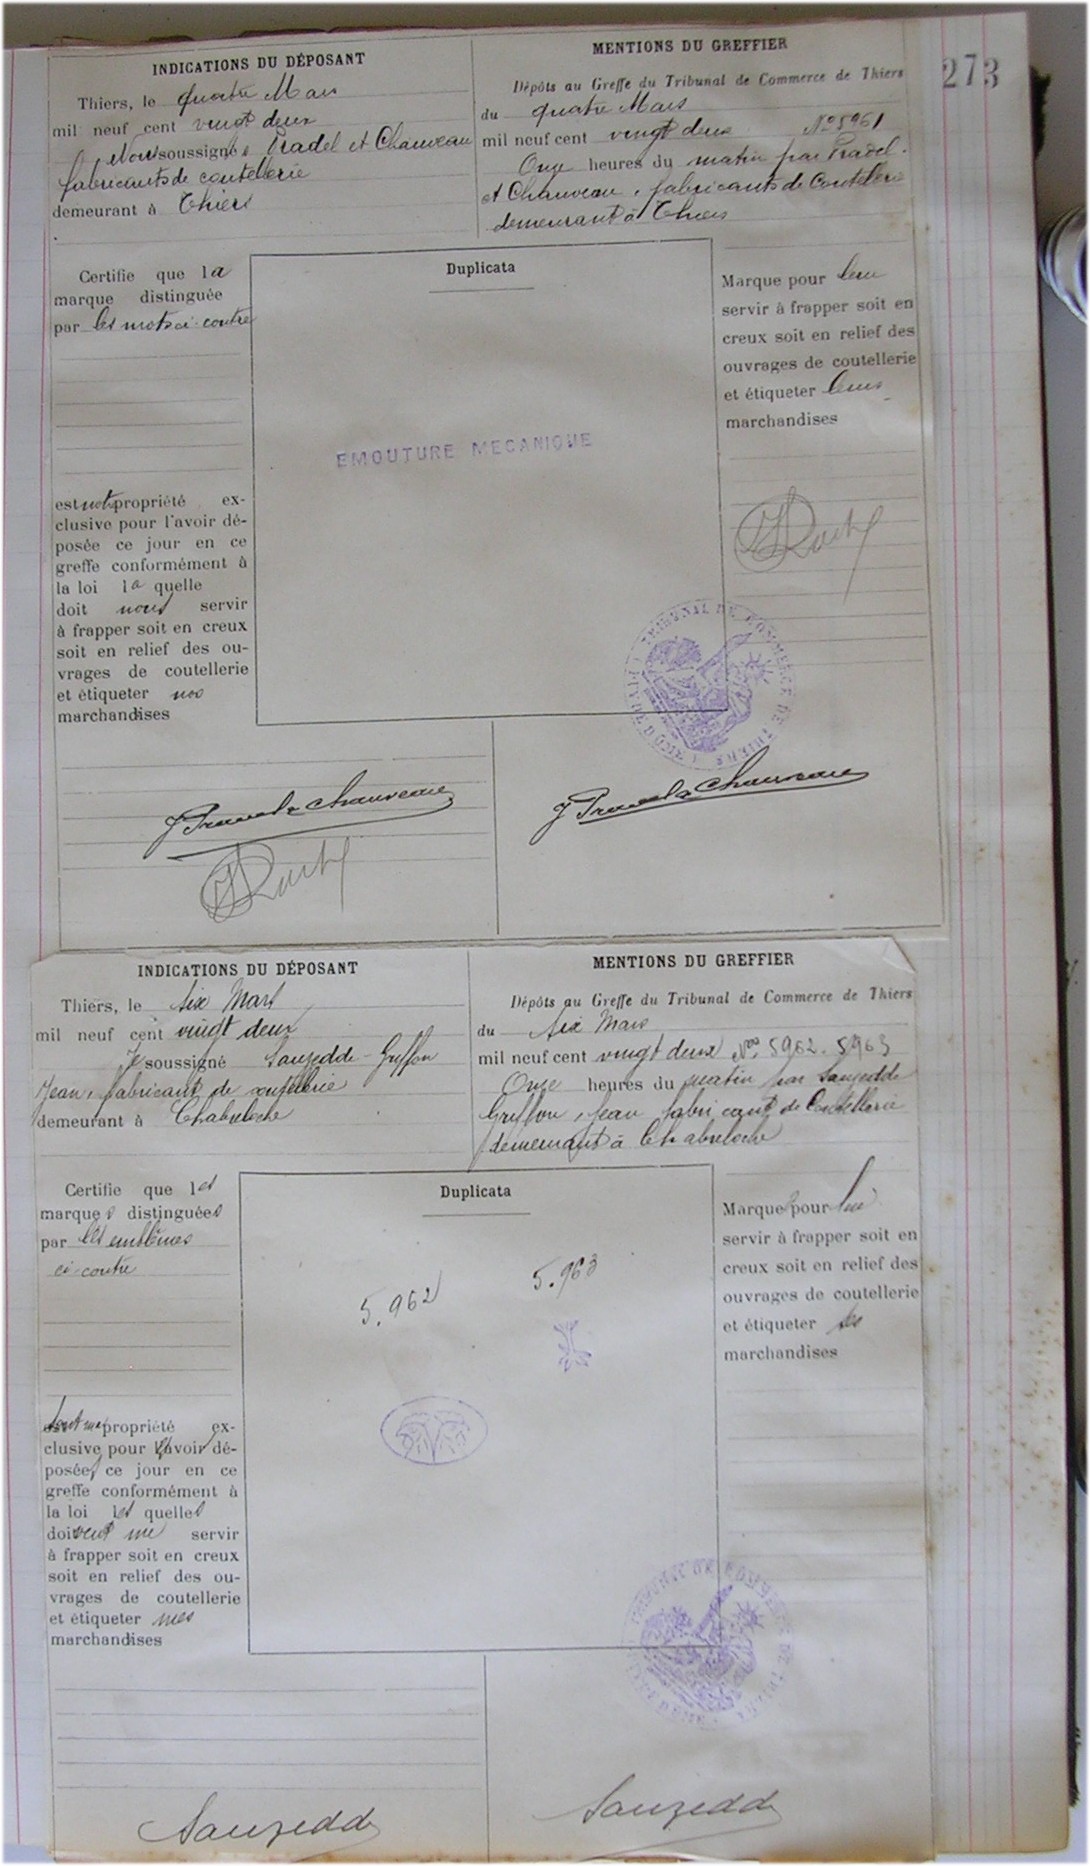 273
INDICATIONS DU DÉPOSANT
Thiers, le quatre Mars
mil neuf cent vingt deux
Nous soussignés Pradel et Chauveau
fabricants de coutellerie
demeurant à Thiers
MENTIONS DU GREFFIER
Dépôts au Greffe du Tribunal de Commerce de Thiers
du quatre Mars
mil neuf cent vingt deux No 5961
Onze heures du matin par Pradel
et Chauveau, fabricants de Coutellerie
demeurant à Thiers
Certifie que la
marque distinguée
par les mots ci-contre
est notre propriété ex-
clusive pour l'avoir dé-
posée ce jour en ce
greffe conformément à
la loi la quelle
doit nous servir
à frapper soit en creux
soit en relief des ou-
vrages de coutellerie
et étiqueter nos
marchandises
Duplicata
EMOUTURE MECANIQUE
Marque pour leur
servir à frapper soit en
creux soit en relief des
ouvrages de coutellerie
et étiqueter leurs
marchandises
TRIBUNAL DE COMMERCE DE THIERS
J Pradel & Chauveau
J Pradel & Chauveau
INDICATIONS DU DÉPOSANT
Thiers, le six Mars
mil neuf cent vingt deux
Je soussigné Sauzedde-Griffon
Jean, fabricant de coutellerie
demeurant à Chabreloche
MENTIONS DU GREFFIER
Dépôts au Greffe du Tribunal de Commerce de Thiers
du six Mars
mil neuf cent vingt deux Nos 5962. 5963
Onze heures du matin par Sauzedde
Griffon, Jean fabricant de Coutellerie
demeurant à Chabreloche
Certifie que les
marques distinguées
par les emblèmes
ci-contre
sont ma propriété ex-
clusive pour l'avoir dé-
posées ce jour en ce
greffe conformément à
la loi les quelles
doivent me servir
à frapper soit en creux
soit en relief des ou-
vrages de coutellerie
et étiqueter mes
marchandises
Duplicata
5.962
5.963
Marques pour lui
servir à frapper soit en
creux soit en relief des
ouvrages de coutellerie
et étiqueter ses
marchandises
TRIBUNAL DE COMMERCE DE THIERS
Sauzedde
Sauzedde